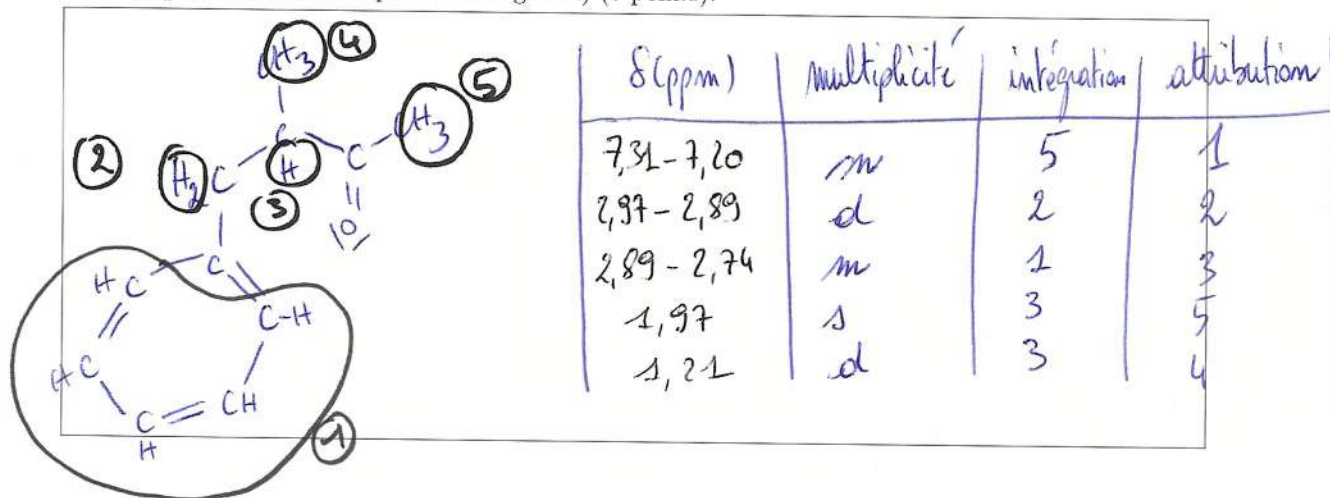 CH3 4
5
CH3
C
C
2 H2 C H
3
|O|
C
H C
C-H
H C
C CH
H
1
δ(ppm) multiplicité intégration attribution
7,31-7,20 m 5 1
2,97-2,89 d 2 2
2,89-2,74 m 1 3
1,97 s 3 5
1,21 d 3 4